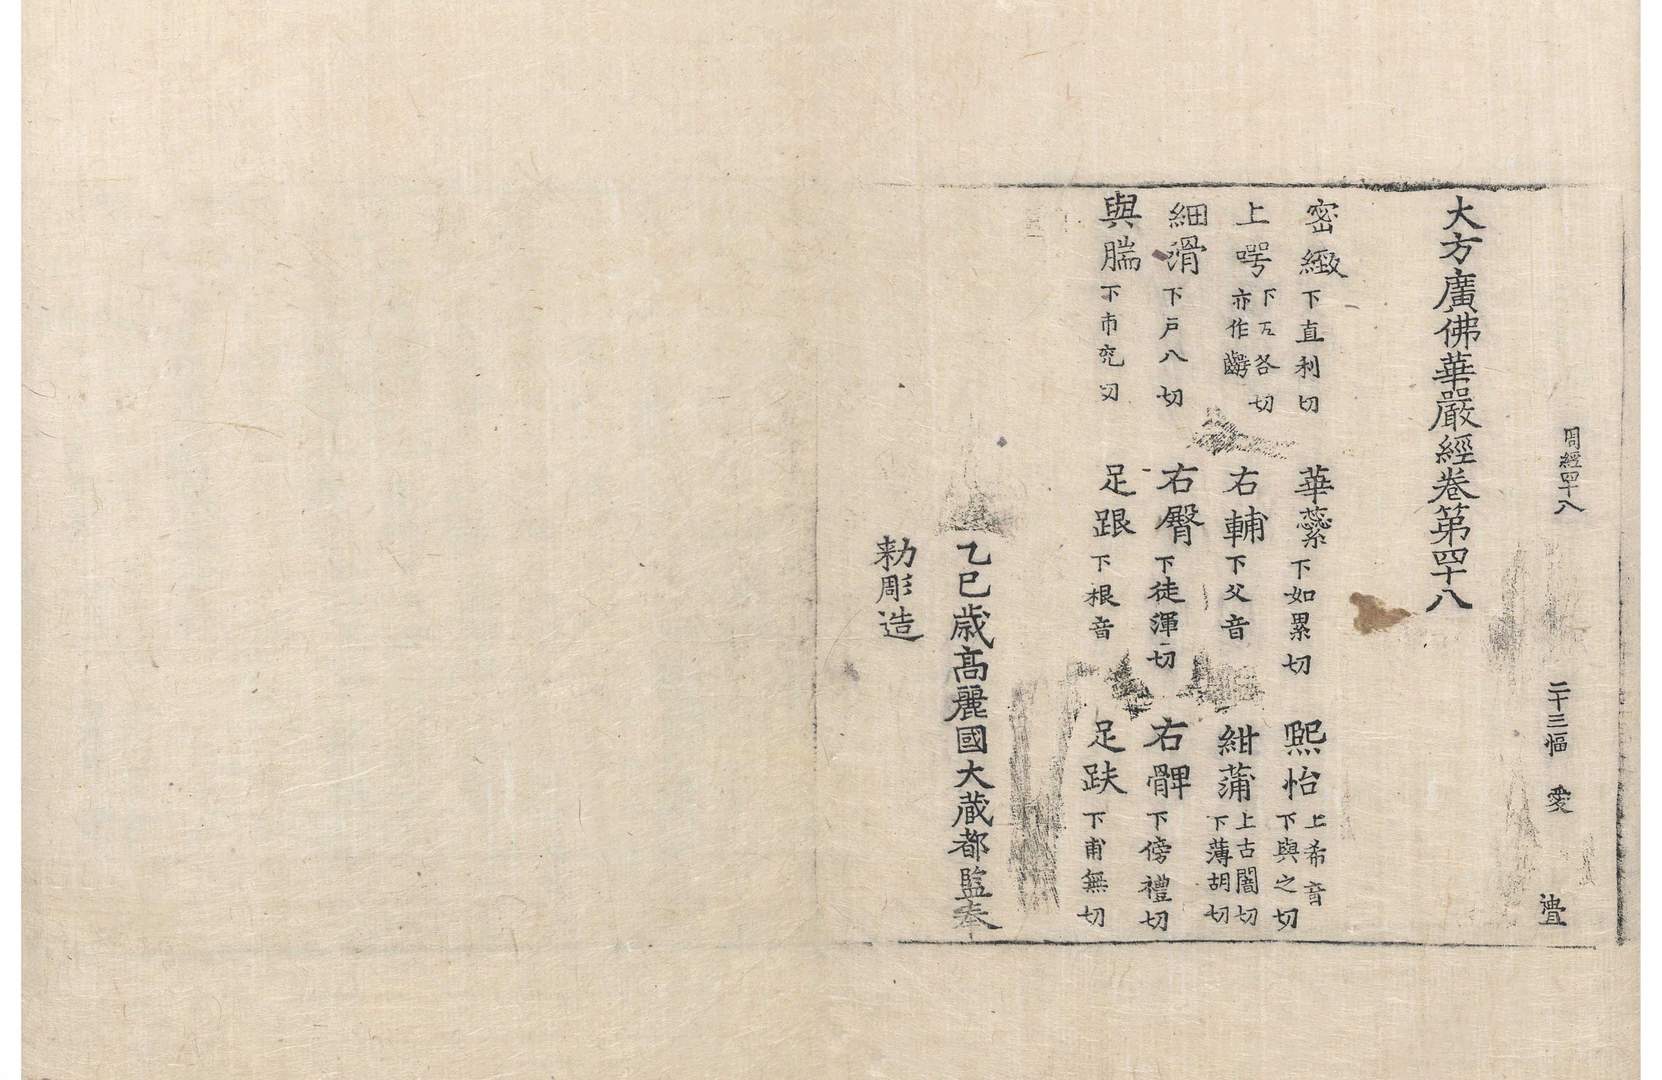 周經四十八　二十三幅　愛
大方廣佛華嚴經卷第四十八
密緻下直利切　華蘂下如累切　熙怡上希音下與之切
上㗁下五各切亦作齶　右輔下父音　紺蒲上古闇切下薄胡切
細滑下戶八切　右臀下徒渾切　右髀下傍禮切
與腨下市兗切　足跟下根音　足趺下甫無切
乙巳歲高麗國大藏都監奉
勅彫造